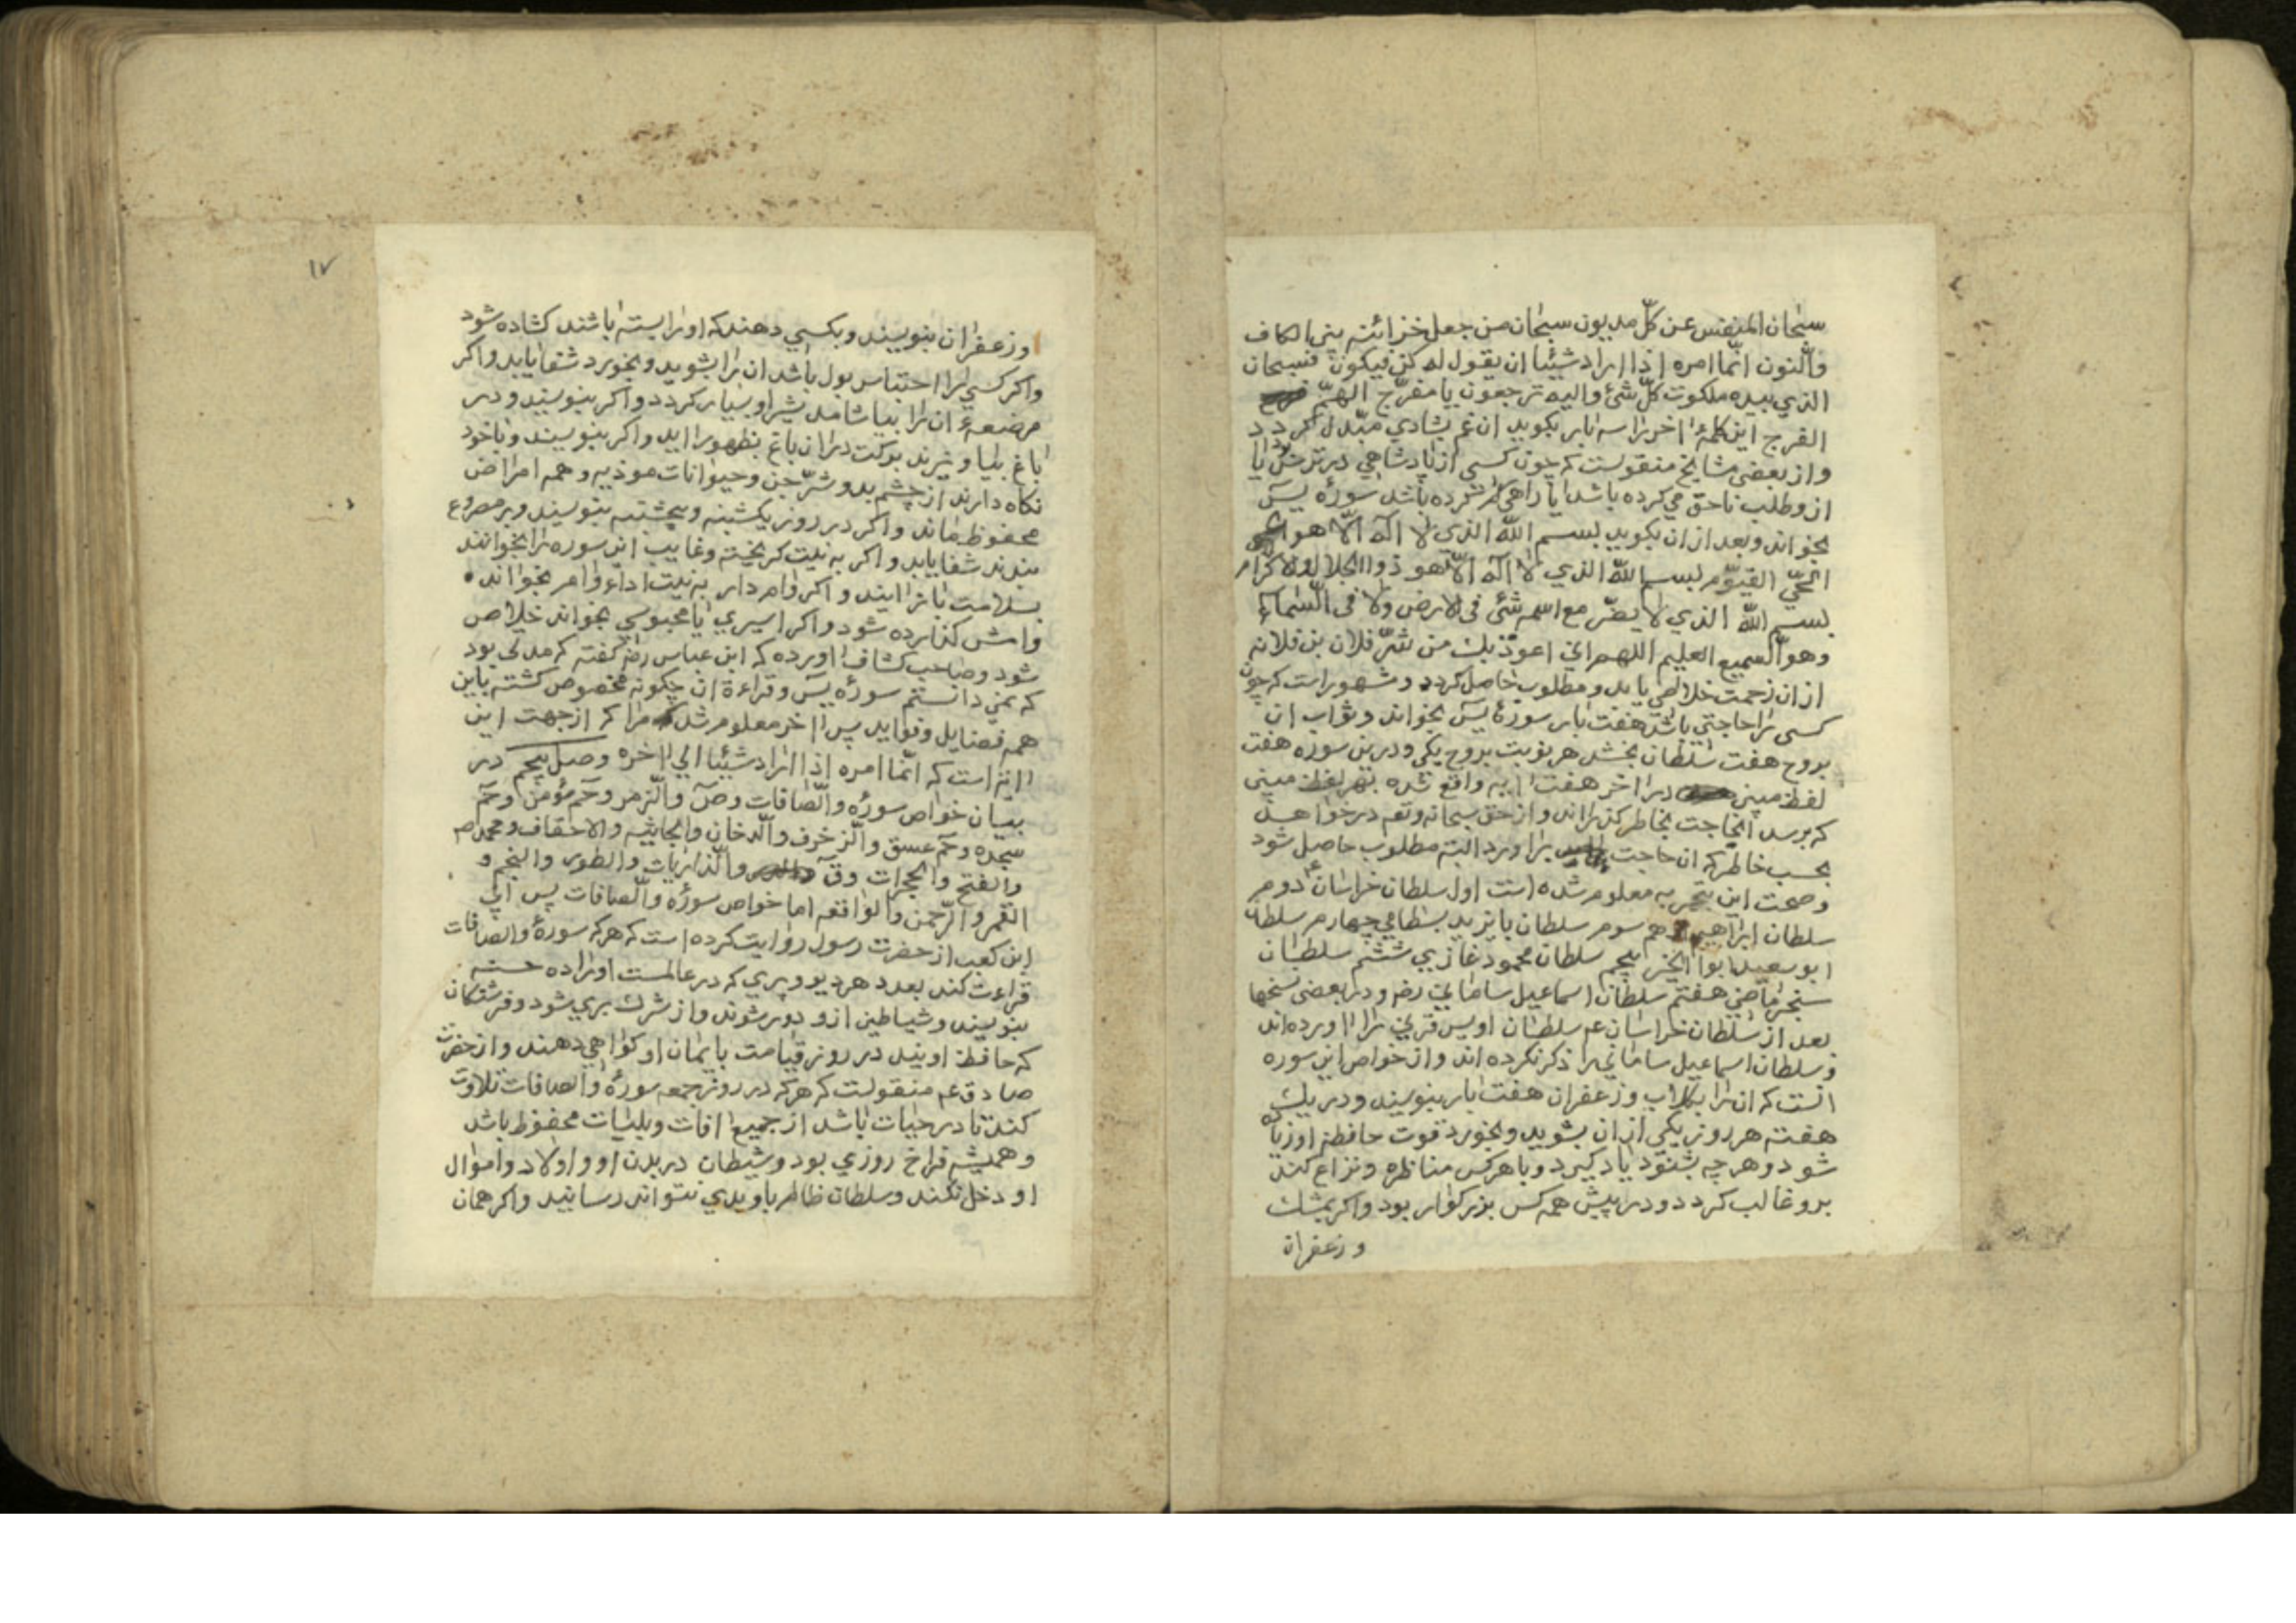 سبحان المنفس عن كلّ مديون سبحان من جعل خزائنه بين الكاف
والنّون انّما امره اذا اراد شيئا ان يقول له كن فيكون فسبحان
الذي بيده ملكوت كلّ شئ واليه ترجعون يا مفرّج الهمّ
الفرج اين كلمهٔ اخر را سه بار بكويد ان غم بشادي مبدّل كردد
و از بعضى مشايخ منقولست كه چون كسى از پادشاهي در ترس يا
ازو طلب ناحق مي كرده باشد يا راهي كم كرده باشد سورهٔ يسٓ
بخواند و بعد از ان بكويد بسم اللّه الذي لا اله الّا هو
الحيّ القيّوم بسم اللّه الذي لا اله الّا هو ذو الجلال والاكرام
بسم اللّه الذي لا يضرّ مع اسمه شئ فى الارض ولا فى السّماء
وهو السّميع العليم اللهم اني اعوذ بك من شرّ فلان بن فلانه
از ان زحمت خلاصي يابد و مطلوب حاصل كردد و مشهور است كه چون
كسى را حاجتي باشد هفت بار سورهٔ يسٓ بخواند و ثواب ان
بروح هفت سلطان بخشد هر نوبت بروح يكي و در ين سوره هفت
لفظ مبين در اخر هفت ايه واقع شده بهر لفظ مبينى
كه برسد انحاجت بخاطر كذراند و از حق سبحانه وتعه درخواهد
بحسب خاطر كه ان حاجت براورد البته مطلوب حاصل شود
و صحت اين بتجربه معلوم شده است اول سلطان خراسان ع م دوم
سلطان ابراهيم ادهم سوم سلطان بايزيد بسطامي چهارم سلطان
ابو سعيد ابوا الخير پنجم سلطان محمود غازيي ششم سلطان
سنجر ماضي هفتم سلطان اسماعيل ساماني رضه و در بعضى نسخها
بعد از سلطان خراسان عم سلطان اويس قرني را اورده اند
و سلطان اسماعيل ساماني را ذكر نكرده اند و از خواص اين سوره
انست كه ان را بكلاب و زعفران هفت بار بنويسد و در يك
هفته هر روز يكي از ان بشويد و بخورد قوت حافظه او زياده
شود و هرچه بشنود ياد كيرد و با هركس مناظره و نزاع كند
برو غالب كردد و در پيش همه كس بزركوار بود و اكر بمشك
و زعفران
و زعفران بنويسند و بكسي دهند كه او را بسته باشند كشاده شود
و اكر كسي را احتباس بول باشد ان را بشويد و بخورد شفا يابد و اكر
مرضعهٔ ان را بياشامد شير او بسيار كردد و اكر بنويسند و در
باغ بياويزند بركت در ان باغ بظهور ايد و اكر بنويسند و باخود
نكاه دارند از چشم بد و شرّ جن و حيوانات موذيه و همه امراض
محفوظ ماند و اكر در روز يكشنبه و پنجشنبه بنويسند و بر مصروع
بندند شفا يابد و اكر به نيت كريخته و غايب اين سوره را بخوانند
بسلامت باز ايند و اكر وام دار به نيت اداء وام بخواند
وامش كذارده شود و اكر اسيري يا محبوسي بخواند خلاص
شود و صاحب كشاف اورده كه ابن عباس رضه كفته كه مدتى بود
كه نمي دانستم سورهٔ يسٓ و قراءة ان چكونه مخصوص كشته باين
همه فضايل و فوايد پس اخر معلوم شد مرا كه از جهت اين
ايه است كه انّما امره اذا اراد شيئا الي اخره وصل پنجم در
بيان خواص سورهٔ والصّافات و صٓ والزّمر و حٓم مؤمن و حٓم
سجده و حٓم عسق والزّخرف والدّخان والجاثيه والاحقاف و محمد صم
والفتح والحجرات وقٓ والذّاريات والطور والنجم و
القمر والرّحمن والواقعه اما خواص سورهٔ والصّافات پس ابي
ابن كعب از حضرت رسول روايت كرده است كه هركه سورهٔ والصافات
قراءت كند بعدد هر ديو و پري كه در عالمست او را ده حسنه
بنويسند و شياطين ازو دور شوند و از شرك بري شود و فرشتكان
كه حافظ اويند در روز قيامت بايمان او كواهي دهند و از حضرت
صادق عم منقولست كه هركه در روز جمعه سورهٔ والصافات تلاوت
كند تا در حيات باشد از جميع افات و بليات محفوظ باشد
و هميشه فراخ روزي بود و شيطان در بدن او و اولاد و اموال
او دخل نكند و سلطان ظالم باو بدي نتواند رسانيد و اكر همان
١٧